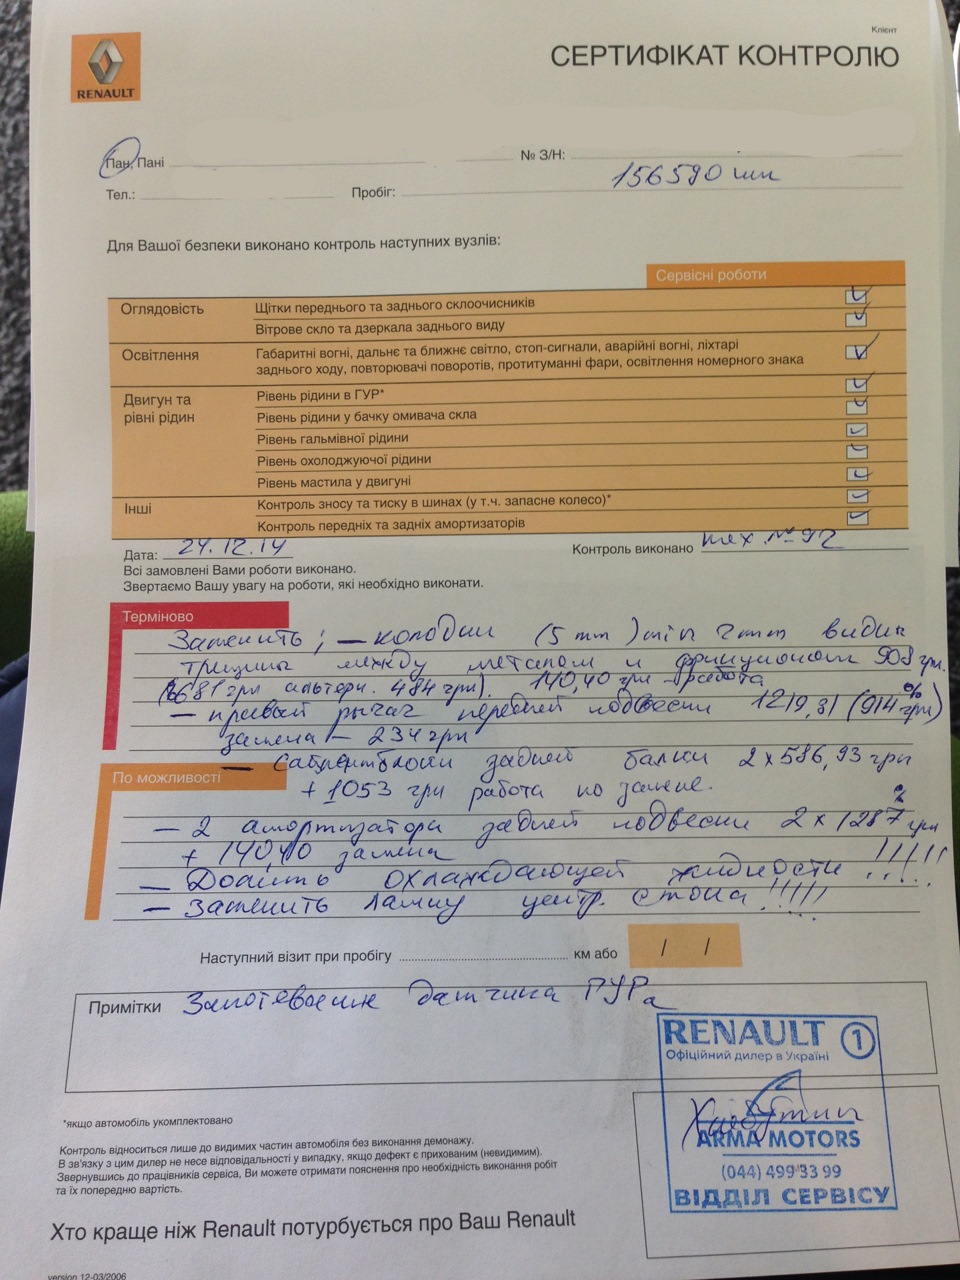 Клієнт
СЕРТИФІКАТ КОНТРОЛЮ
RENAULT
Пан, Пані № З/Н:
Тел.: Пробіг: 156590 км
Для Вашої безпеки виконано контроль наступних вузлів:
Сервісні роботи
Оглядовість Щітки переднього та заднього склоочисників
Вітрове скло та дзеркала заднього виду
Освітлення Габаритні вогні, дальнє та ближнє світло, стоп-сигнали, аварійні вогні, ліхтарі
заднього ходу, повторювачі поворотів, протитуманні фари, освітлення номерного знака
Двигун та Рівень рідини в ГУР*
рівні рідин Рівень рідини у бачку омивача скла
Рівень гальмівної рідини
Рівень охолоджуючої рідини
Рівень мастила у двигуні
Інші Контроль зносу та тиску в шинах (у т.ч. запасне колесо)*
Контроль передніх та задніх амортизаторів
Дата: 24.12.14 Контроль виконано мех. № 92
Всі замовлені Вами роботи виконано.
Звертаємо Вашу увагу на роботи, які необхідно виконати.
Терміново
Заменить; – колодки (5 mm) min 7mm видны
трещины между металом и фрикционом 908 грн.
(681 грн альтерн. 484 грн). 140,40 грн – работа
– правый рычаг передней подвески 1219,81 (914 грн)
замена – 234 грн
– Сайлентблоки задней балки 2x586,93 грн
По можливості
+ 1053 грн работа по замене.
– 2 амортизатора задней подвески 2x1287 грн
+ 140,40 замена
– Долить охлаждающей жидкости !!!!!
– Заменить лампу центр. стопа !!!!!
Наступний візит при пробігу км або / /
Примітки Запотевание датчика ГУРа
RENAULT 1
Офіційний дилер в Україні
ARMA MOTORS
(044) 499 33 99
ВІДДІЛ СЕРВІСУ
*якщо автомобіль укомплектовано
Контроль відноситься лише до видимих частин автомобіля без виконання демонажу.
В зв'язку з цим дилер не несе відповідальності у випадку, якщо дефект є прихованим (невидимим).
Звернувшись до працівників сервіса, Ви можете отримати пояснення про необхідність виконання робіт
та їх попередню вартість.
Хто краще ніж Renault потурбується про Ваш Renault
version 12-03/2006